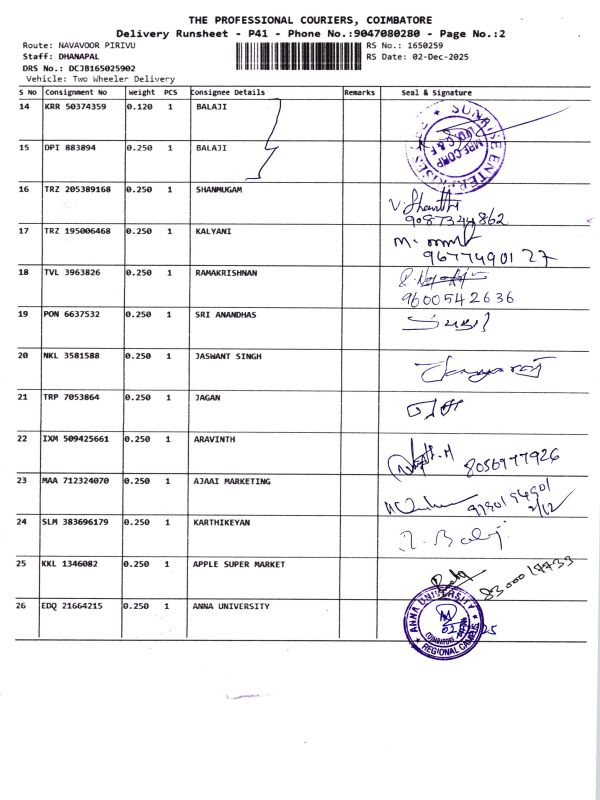 THE PROFESSIONAL COURIERS, COIMBATORE
Delivery Runsheet - P41 - Phone No.:9047080280 - Page No.:2
Route: NAVAVOOR PIRIVU RS No.: 1650259
Staff: DHANAPAL RS Date: 02-Dec-2025
DRS No.: DCJB165025902
Vehicle: Two Wheeler Delivery
S No Consignment No Weight PCS Consignee Details Remarks Seal & Signature
14 KRR 50374359 0.120 1 BALAJI
SUNRISE ENTERPRISES
MPF. CORP
15 DPI 883894 0.250 1 BALAJI
16 TRZ 205389168 0.250 1 SHANMUGAM
9087344862
17 TRZ 195006468 0.250 1 KALYANI
9677490127
18 TVL 3963826 0.250 1 RAMAKRISHNAN
9600542636
19 PON 6637532 0.250 1 SRI ANANDHAS
20 NKL 3581588 0.250 1 JASWANT SINGH
21 TRP 7053864 0.250 1 JAGAN
22 IXM 509425661 0.250 1 ARAVINTH
8056977926
23 MAA 712324070 0.250 1 AJAAI MARKETING
2/12
24 SLM 383696179 0.250 1 KARTHIKEYAN
25 KKL 1346082 0.250 1 APPLE SUPER MARKET
26 EDQ 21664215 0.250 1 ANNA UNIVERSITY
ANNA UNIVERSITY
COIMBATORE
REGIONAL CAMPUS